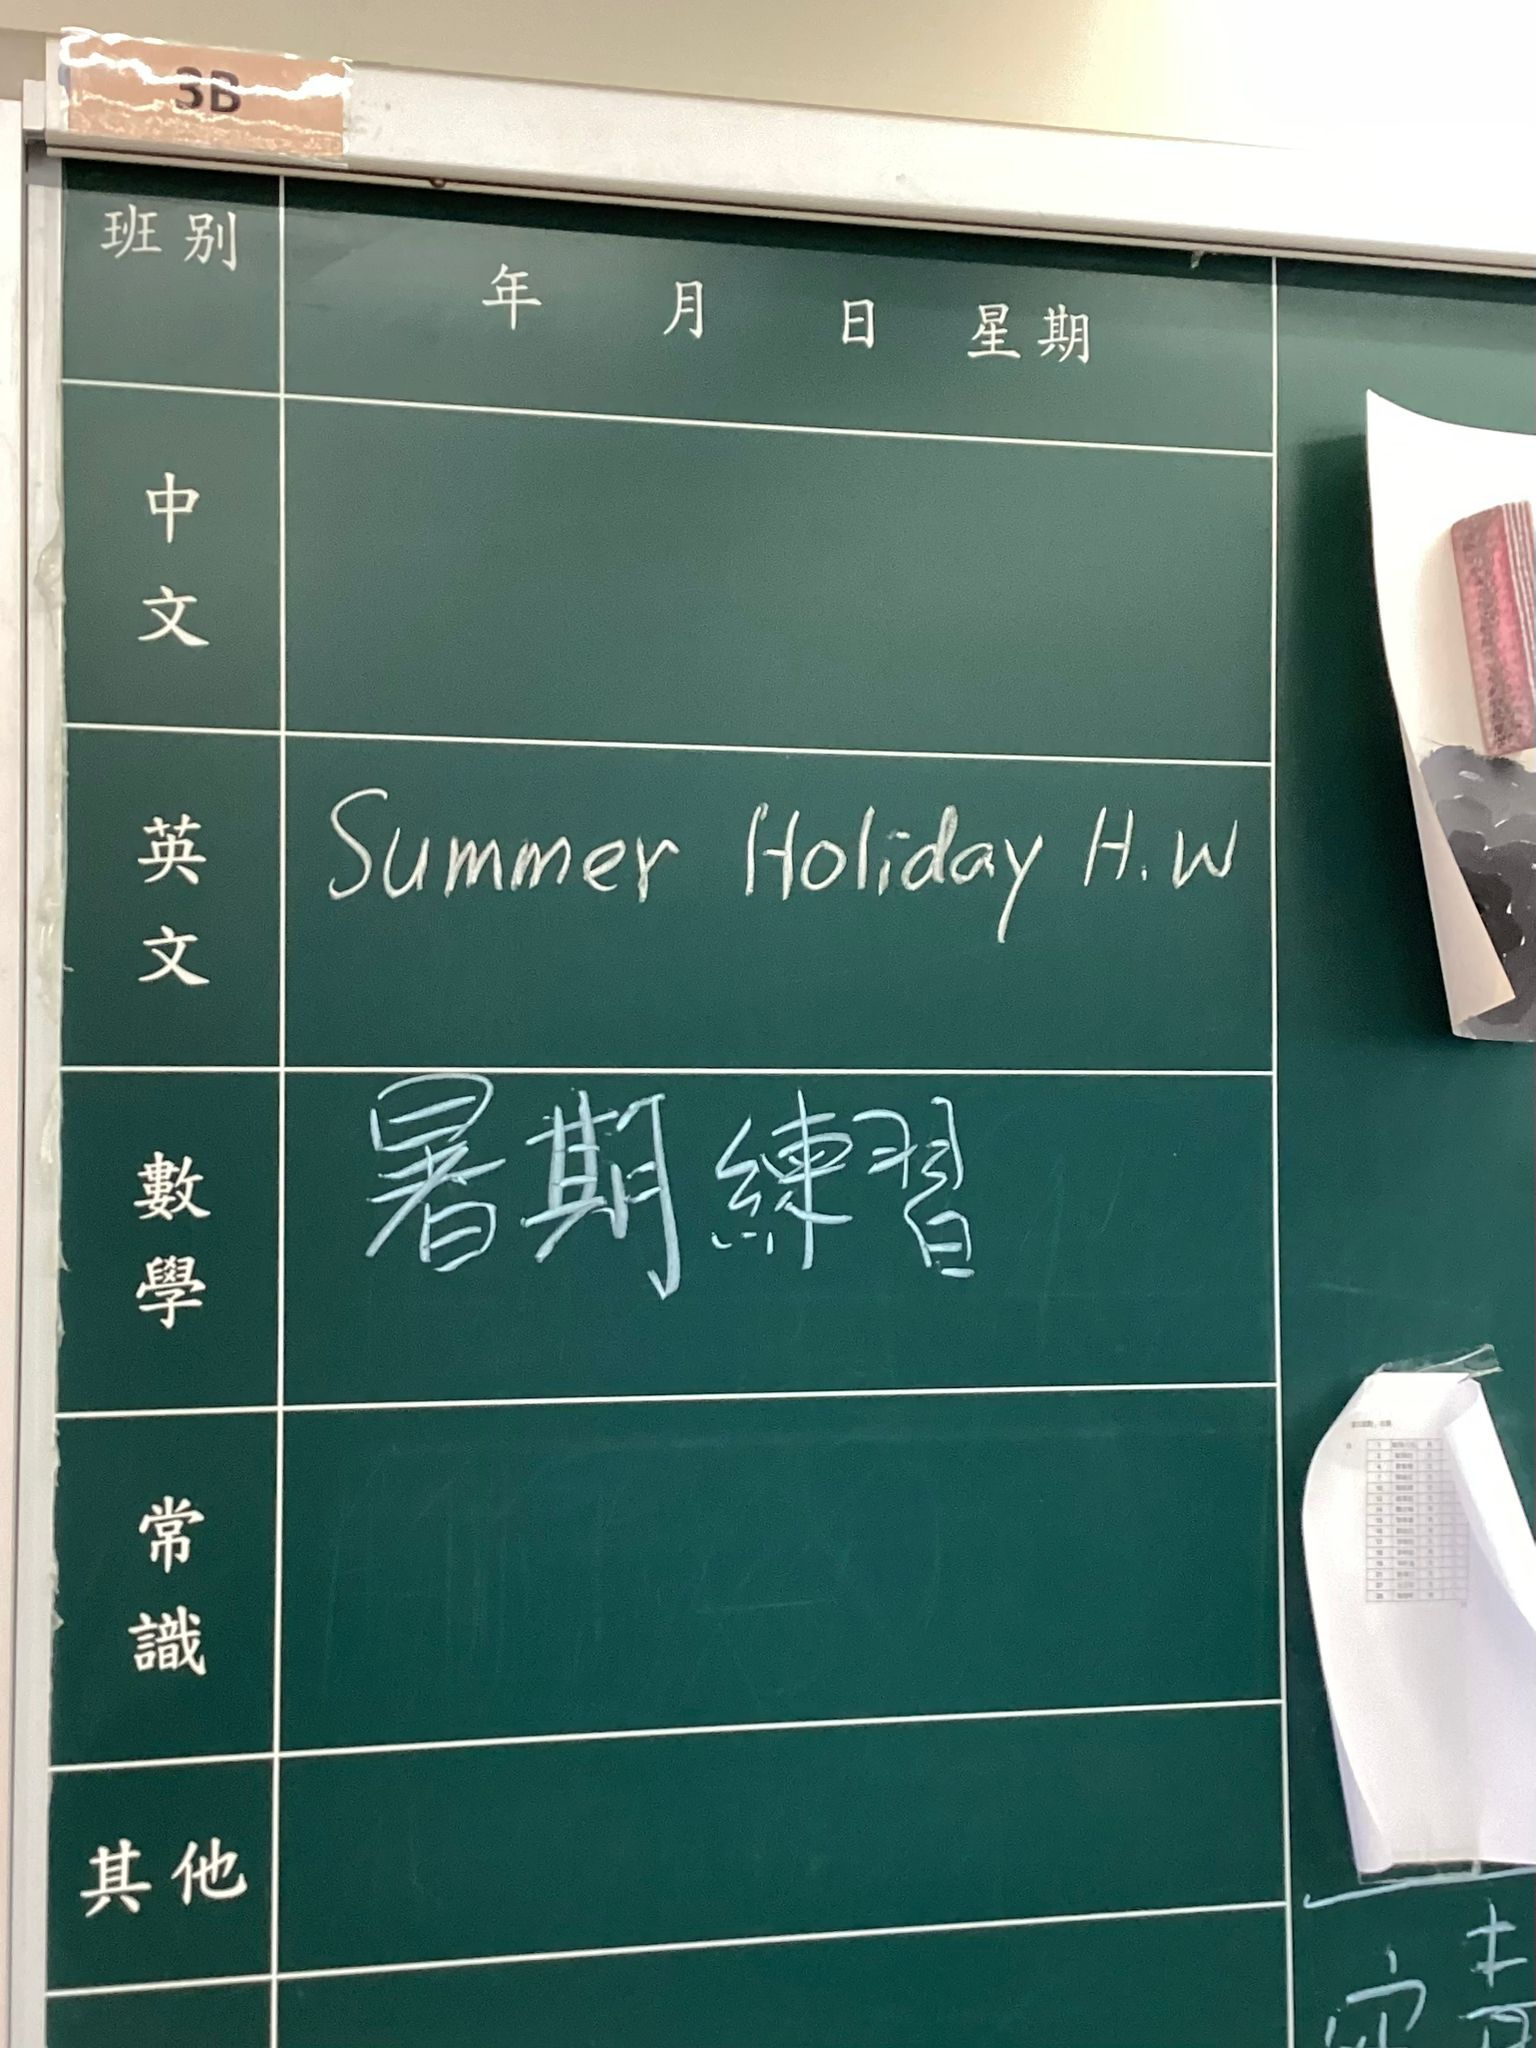 3B
班别
年 月 日 星期
中文
英文
Summer Holiday H.W
數學
暑期練習
常識
其他